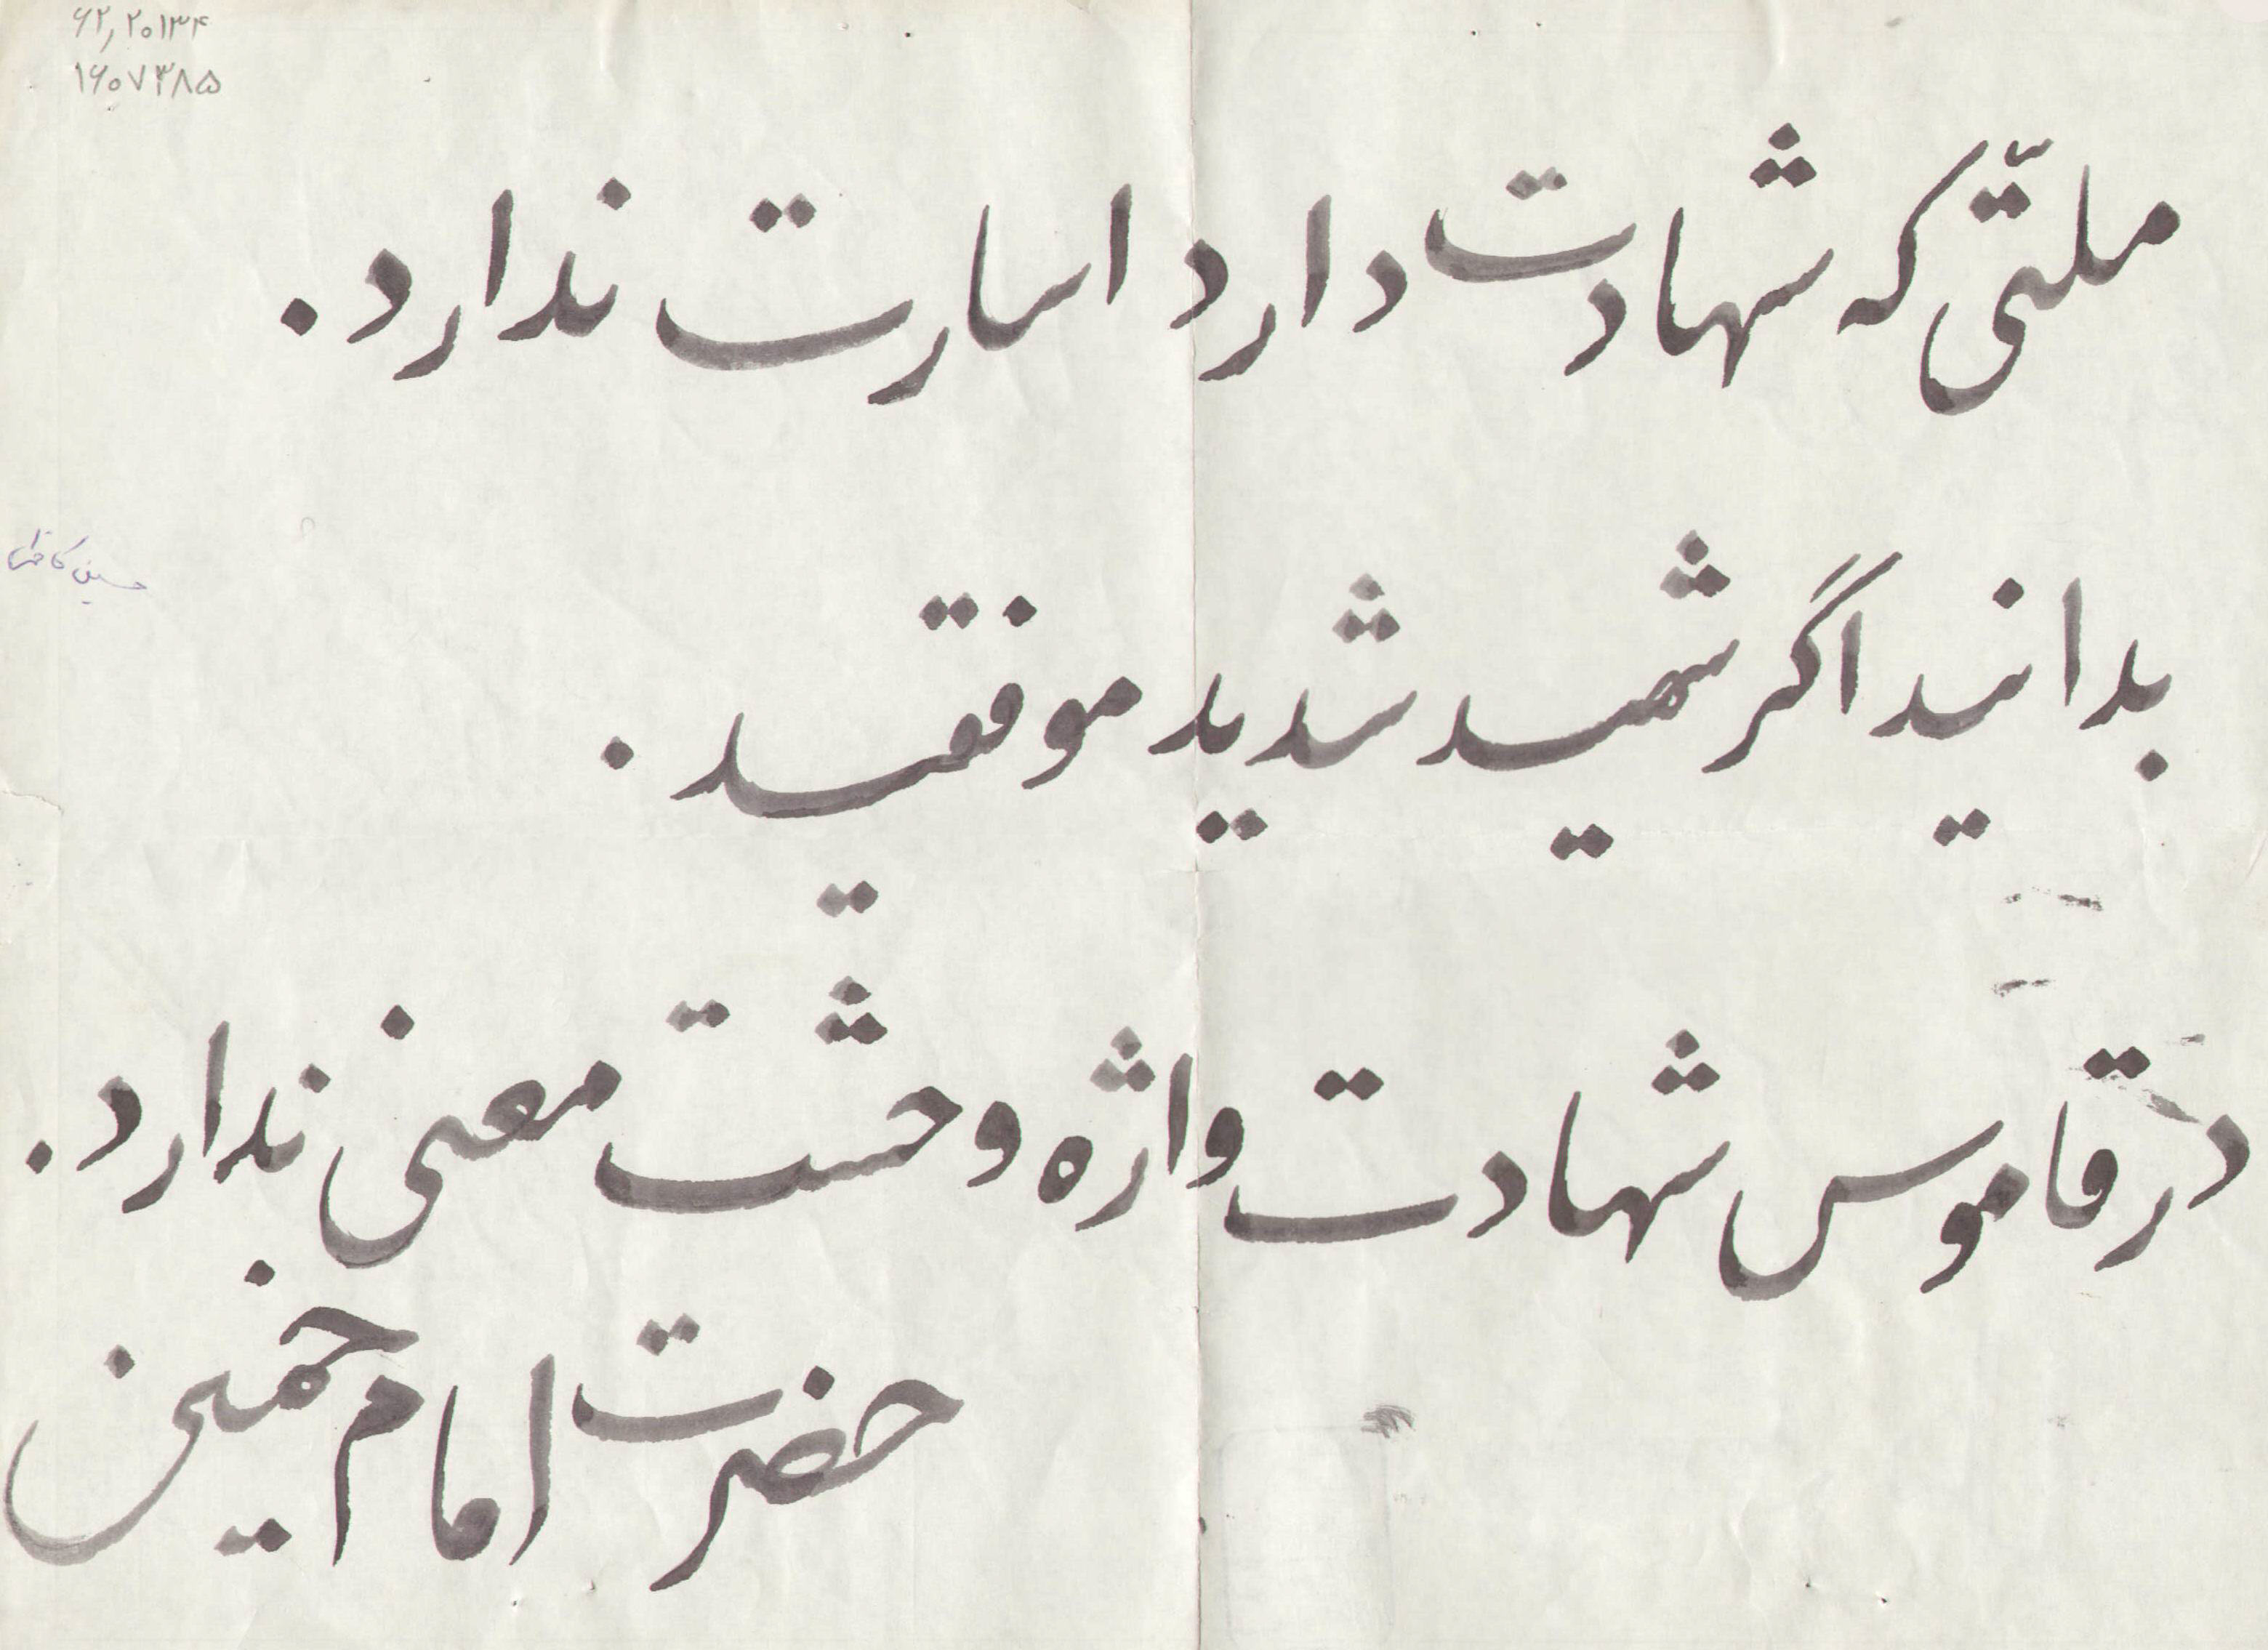 ۶۲٫۲۰۱۳۴
۱۶۰۷۳۸۵
ملتّی که شهادت دارد اسارت ندارد.
حسین
بدانید اگر شهید شدید موفقید.
در قاموس شهادت واژه وحشت معنی ندارد.
حضرت امام خمینی